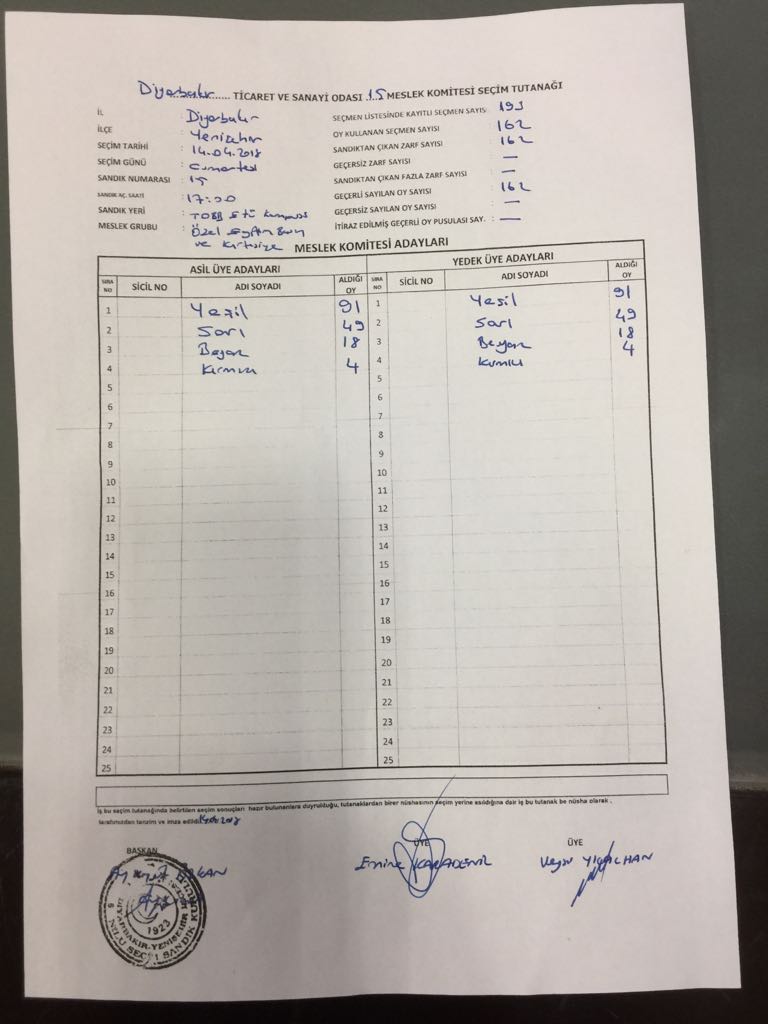 Diyarbakır TİCARET VE SANAYİ ODASI 15 MESLEK KOMİTESİ SEÇİM TUTANAĞI
İL : Diyarbakır
İLÇE : Yenişehir
SEÇİM TARİHİ : 14.04.2018
SEÇİM GÜNÜ : Cumartesi
SANDIK NUMARASI : 15
SANDIK AÇ. SAATİ : 17:00
SANDIK YERİ : TOBB Etü Kampüs
MESLEK GRUBU : Özel Eğitim Basın
ve Kırtasiye
SEÇMEN LİSTESİNDE KAYITLI SEÇMEN SAYISI : 193
OY KULLANAN SEÇMEN SAYISI : 162
SANDIKTAN ÇIKAN ZARF SAYISI : 162
GEÇERSİZ ZARF SAYISI : —
SANDIKTAN ÇIKAN FAZLA ZARF SAYISI : —
GEÇERLİ SAYILAN OY SAYISI : 162
GEÇERSİZ SAYILAN OY SAYISI : —
İTİRAZ EDİLMİŞ GEÇERLİ OY PUSULASI SAY. : —
MESLEK KOMİTESİ ADAYLARI
ASİL ÜYE ADAYLARI
SIRA NO SİCİL NO ADI SOYADI ALDIĞI OY
1 Yeşil 91
2 Sarı 49
3 Beyaz 18
4 Kırmızı 4
5
6
7
8
9
10
11
12
13
14
15
16
17
18
19
20
21
22
23
24
25
YEDEK ÜYE ADAYLARI
SIRA NO SİCİL NO ADI SOYADI ALDIĞI OY
1 Yeşil 91
2 Sarı 49
3 Beyaz 18
4 Kırmızı 4
5
6
7
8
9
10
11
12
13
14
15
16
17
18
19
20
21
22
23
24
25
İş bu seçim tutanağında belirtilen seçim sonuçları hazır bulunanlara duyrulduğu, tutanaklardan birer nüshasının seçim yerine asıldığına dair iş bu tutanak be nüsha olarak ,
tarafımızdan tanzim ve imza edildi.
BAŞKAN
ÜYE
Emine KARADENİZ
ÜYE
1923
DİYARBAKIR-YENİŞEHİR